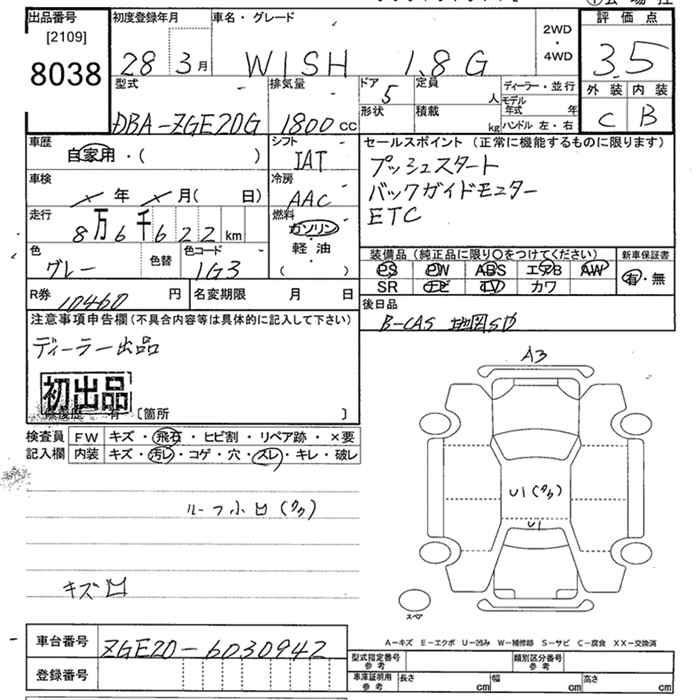 出品番号 [2109] 8038
初度登録年月 28 3月
車名・グレード WISH 1.8G
2WD・4WD
評価点 3.5
外装 C 内装 B
型式 DBA-ZGE20G
排気量 1800cc
ドア 5
形状
定員 人
積載 kg
ディーラー・並行
モデル年式 年
ハンドル 左・右
車歴 自家用・( )
シフト IAT
車検 年 月( 日)
冷房 AAC
走行 8万6千622km
燃料 ガソリン・軽油 ( )
色 グレー
色替
色コード 1G3
R券 10460円
名変期限 月 日
セールスポイント (正常に機能するものに限ります)
プッシュスタート
バックガイドモニター
ETC
装備品 (純正品に限り○をつけてください)
PS PW ABS エアB AW
SR ナビ TV カワ
新車保証書 有・無
後日品
B-CAS 地図SD
注意事項申告欄(不具合内容等は具体的に記入して下さい)
ディーラー出品
初出品
修復歴 有・[箇所 ]
検査員記入欄
FW キズ・飛石・ヒビ割・リペア跡・×要
内装 キズ・汚レ・コゲ・穴・スレ・キレ・破レ
ルーフ小凹(タク)
キズ凹
A3
U1(タク)
U1
スペア
A-キズ E-エクボ U-凹み W-補修跡 S-サビ C-腐食 XX-交換済
車台番号 ZGE20-6030942
登録番号
型式指定番号 参考
類別区分番号 参考
車庫証明用 参考 長さ cm 幅 cm 高さ cm